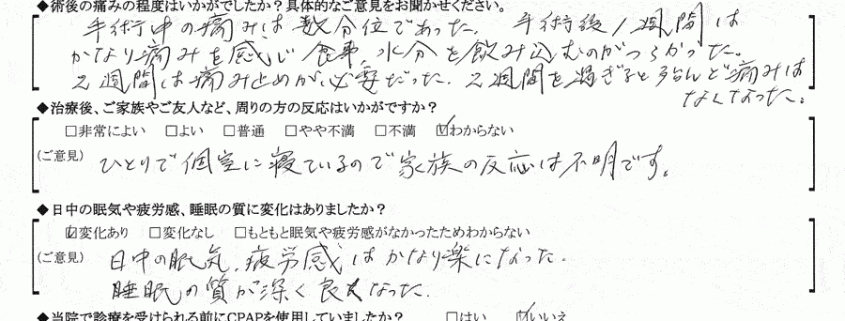 ◆術後の痛みの程度はいかがでしたか?具体的なご意見をお聞かせください。
手術中の痛みは数分位であった。手術後1週間は
かなり痛みを感じ食事、水分を飲み込むのがつらかった。
2週間は痛み止めが必要だった。2週間を過ぎると殆んど痛みは
なくなった。
◆治療後、ご家族やご友人など、周りの方の反応はいかがですか?
□非常によい □よい □普通 □やや不満 □不満 ☑わからない
(ご意見) ひとりで個室に寝ているので家族の反応は不明です。
◆日中の眠気や疲労感、睡眠の質に変化はありましたか?
☑変化あり □変化なし □もともと眠気や疲労感がなかったためわからない
(ご意見) 日中の眠気、疲労感はかなり楽になった。
睡眠の質が深く良くなった。
◆当院で診療を受けられる前にCPAPを使用していましたか? □はい ☑いいえ